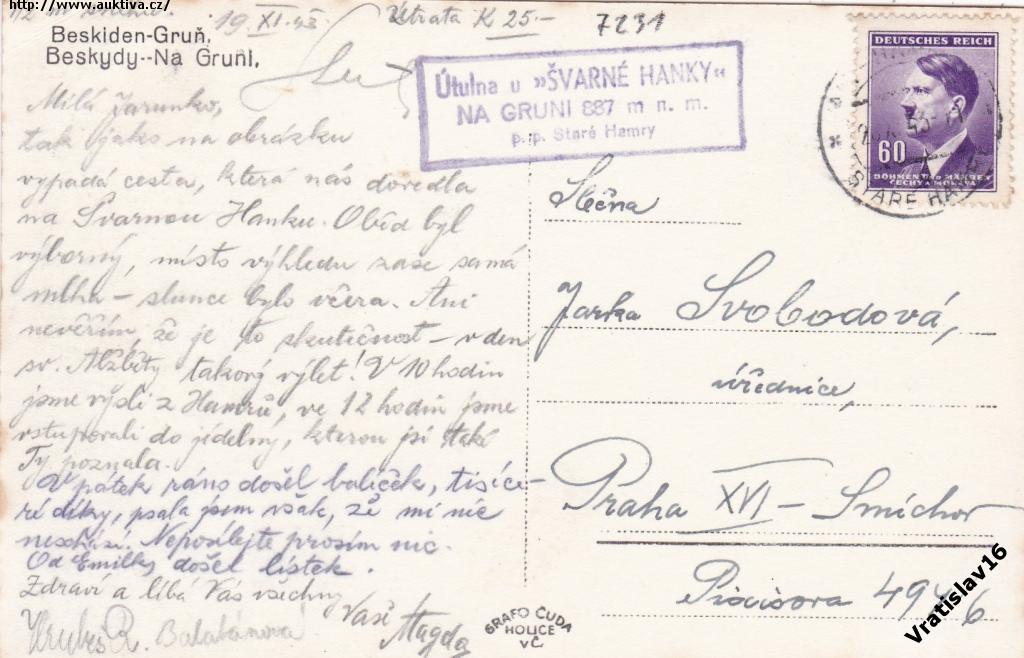 http://www.auktiva.cz/
19. XI. 43 Útrata K 25.- 7231
Beskiden-Gruň,
Beskydy--Na Gruni,
Útulna u »ŠVARNÉ HANKY«
NA GRUNI 887 m n. m.
p.p. Staré Hamry
DEUTSCHES REICH
60
BÖHMEN U. MÄHREN
ČECHY A MORAVA
STARÉ HA
Milá Jarunko,
tak jako na obrázku
vypadá cesta, která nás dovedla
na Švarnou Hanku. Oběd byl
výborný, místo výhledu zase samá
mlha - slunce bylo včera. Ani
nevěřím, že je to skutečnost - v den
sv. Alžběty takový výlet! V 10 hodin
jsme vyšli z Hamrů, ve 12 hodin jsme
vstupovali do jídelny, kterou jsi také
Ty poznala.
V pátek ráno došel balíček, tisíce-
ré díky, psala jsem však, že mi nic
neschází. Neposílejte prosím nic.
Od Emilky došel lístek.
Zdraví a líbá Vás všechny
Vaší Magda
R. Balabánová
Slečna
Jarka Svobodová,
úřednice,
Praha XVI - Smíchov
494
GRAFO ČUDA
HOLICE
V Č.
Vratislav16